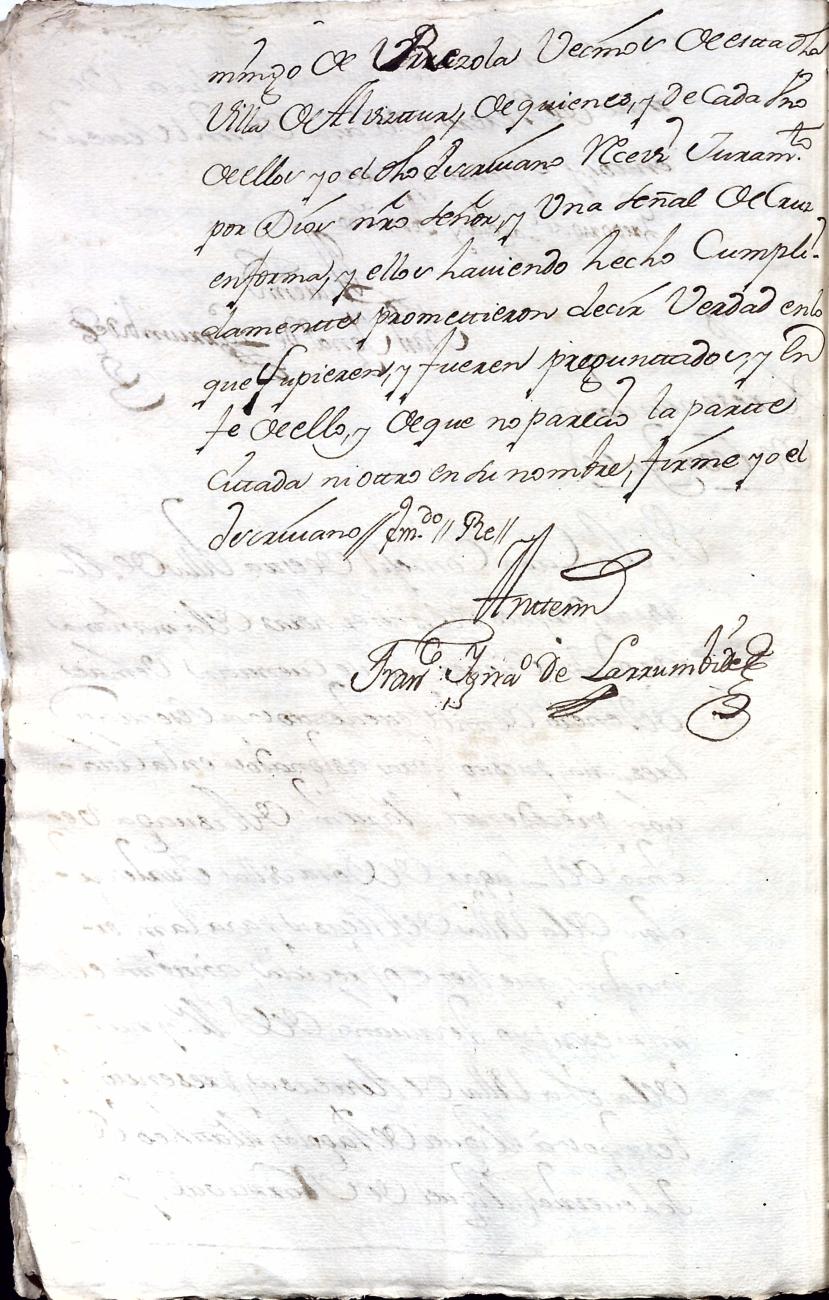 mingo de Urrezola Vecinos de esta dha
Villa de Alviztur, y de quienes, y de cada Vno
de ellos yo el dho Escrivano Receví Juram.to
por Dios nro Señor, y Una Señal de Cruz
en forma, y ellos haviendo hecho Cumpli-
damentte promettieron decir Verdad en lo
que supieren, y fueren preguntados, y En
fe de ello, y de que no pareció la partte
Cittada ni ottro en su nombre, firmé yo el
Escrivano // Em.do // Re //
Antte mi
Fran.co Ygna.o de Larrumbide